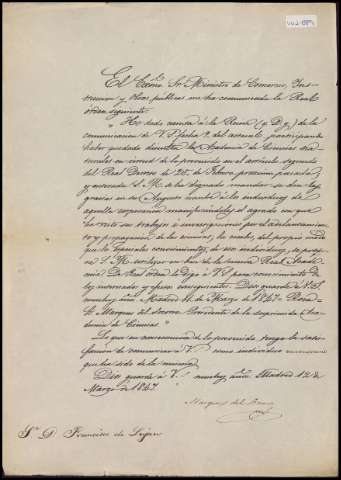 El Excmo. Sr. Ministro de Comercio, Ins-
truccion y Obras públicas me ha comunicado la Real
órden siguiente
"He dado cuenta á la Reina (q. D. g.) de la
comunicacion de V.S. fecha 9 del actual participando
haber quedado disuelta la Academia de Ciencias Na-
turales en virtud de lo prevenido en el artículo segundo
del Real Decreto de 25 de Febrero proximo pasado,
y enterada S. M. se ha dignado mandar se den las
gracias en su Augusto nombre á los individuos de
aquella corporacion manifestándoles el agrado con que
ha visto sus trabajos é investigaciones por el adelantamien-
to y propagacion de las ciencias, del propio modo
que los especiales conocimientos de sus individuos
S. M. en la nueva Real Acade-
mia. De Real órden lo digo á V.S. para conocimiento de
los interesados y fines consiguientes. Dios guarde á V.S.
muchos años Madrid 11 de Marzo de 1847 = Roca =
Sr. Marques del Socorro Presidente de la Academia
de Ciencias"
Lo que en consecuencia de lo prevenido tengo la satis-
faccion de comunicar á V. como individuo
que ha sido de la misma
Dios guarde á V. muchos años. Madrid 12 de
Marzo de 1847
Marques del Socorro
Sr. D. Francisco de Luxan